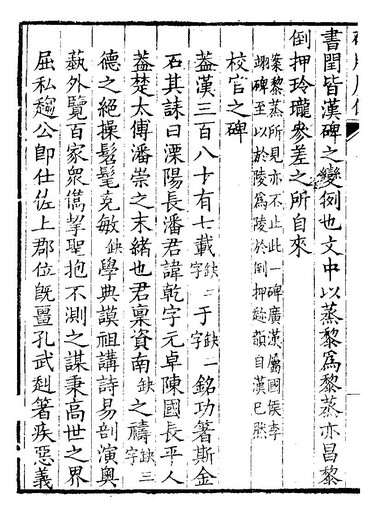 書閏皆漢碑之變例也文中以蒸黎爲黎蒸亦昌黎
倒押玲瓏參差之所自來
案黎蒸所見亦不止此一碑廣漢屬國侯李
翊碑至以於陵爲陵於倒押趁韻自漢已然
校官之碑
葢漢三百八十有七載缺二字于缺一字銘功箸斯金
石其誄曰溧陽長潘君諱乾字元卓陳國長平人
葢楚太傅潘崇之末緒也君稟資南缺之禱缺三字
德之絕操髫髦克敏缺學典謨祖講詩易剖演奧
蓺外覽百家衆儁挈聖抱不測之謀秉高世之界
屈私趨公卽仕佐上郡位旣重孔武赳箸疾惡義